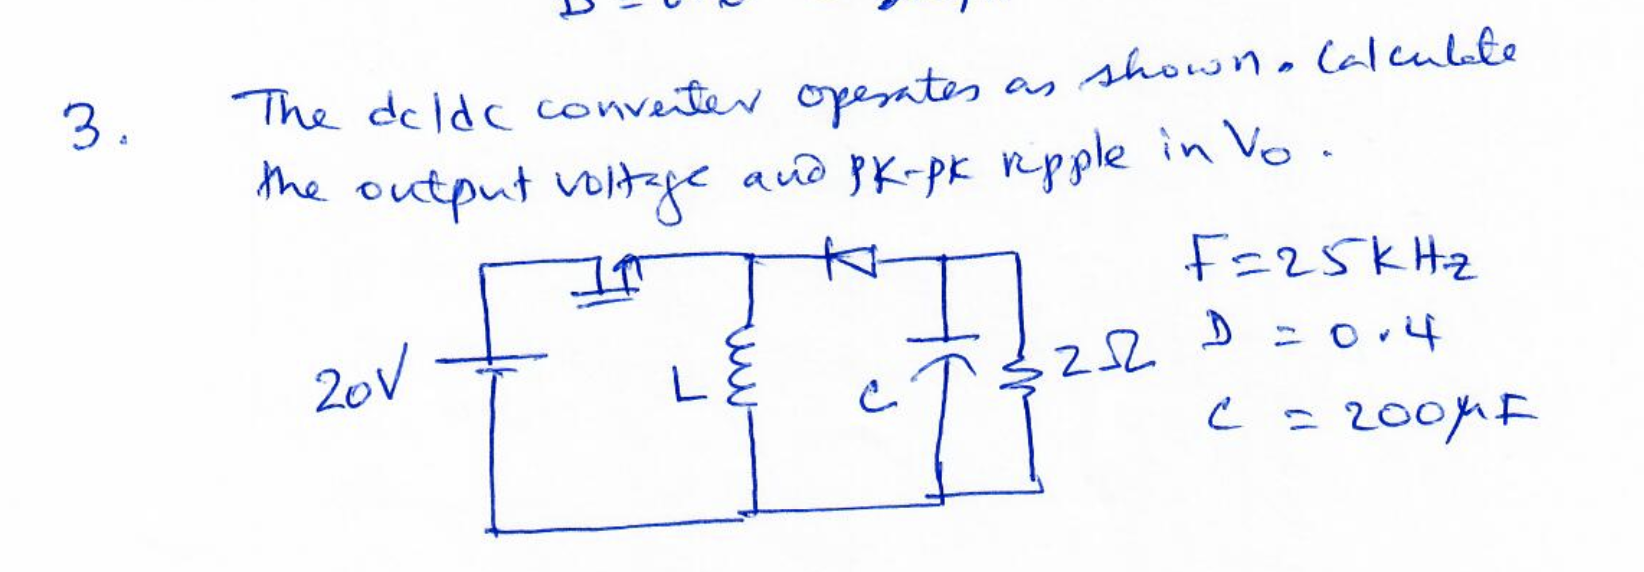 3. The dc/dc converter operates as shown. Calculate
the output voltage and PK-PK ripple in Vo.
F=25kHz
D = 0.4
C = 200μF
20V
L
C
2Ω